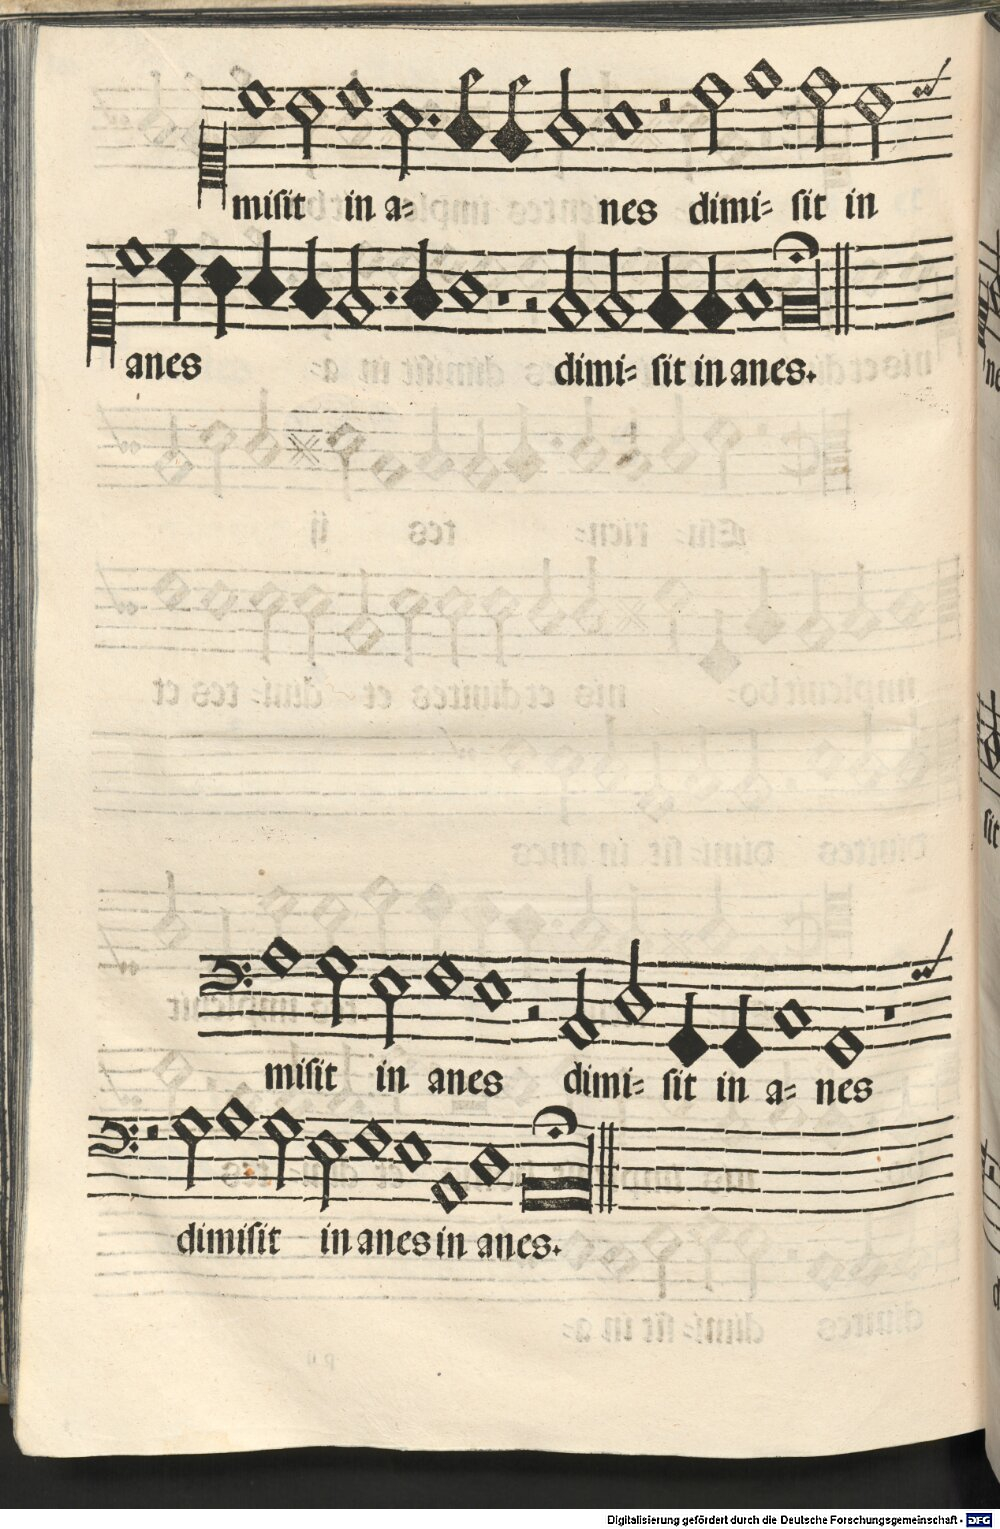 misit in a= nes dimi= sit in
anes dimi= sit in anes.
misit in anes dimi= sit in a= nes
dimisit in anes in anes.
Digitalisierung gefördert durch die Deutsche Forschungsgemeinschaft - DFG